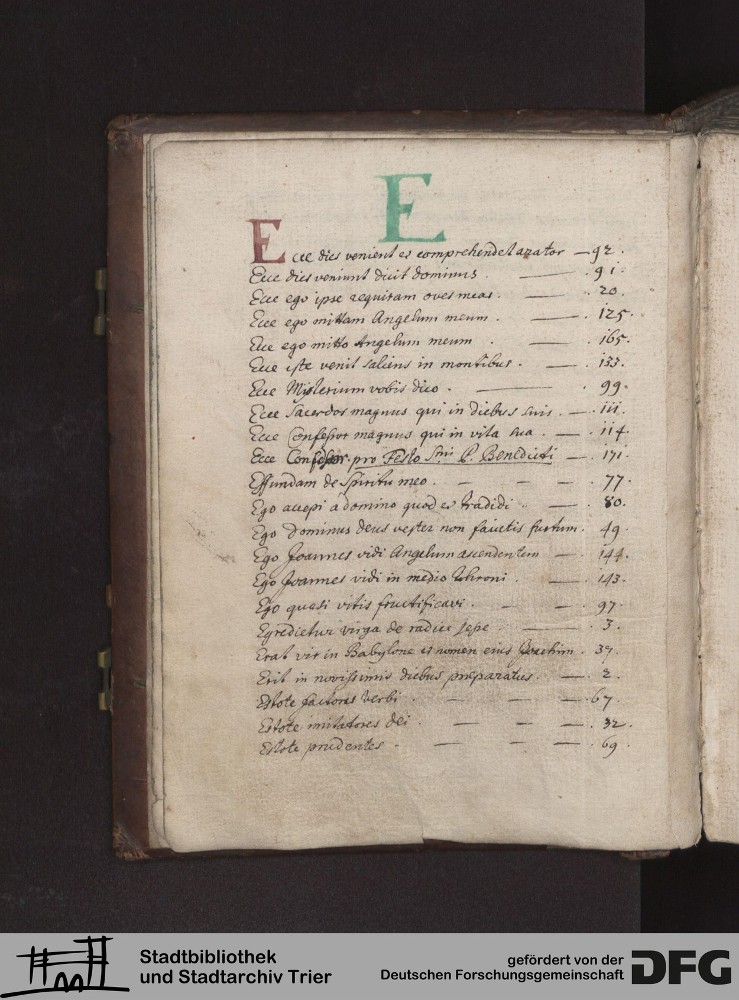 E
Ecce dies venient et comprehendet arator — 92.
Ecce dies veniunt dicit dominus. — . 91.
Ecce ego ipse requiram oves meas. — . 20.
Ecce ego mittam Angelum meum. — . 125.
Ecce ego mitto Angelum meum — . 165.
Ecce iste venit saliens in montibus. — . 133.
Ecce Misterium vobis dico. — . 99.
Ecce Sacerdos magnus qui in diebus suis. — . 111.
Ecce Confessor magnus qui in vita sua. — . 114.
Ecce Confessor. pro Festo Smi P. Benedicti — . 171.
Effundam de Spiritu meo. — — . 77.
Ego accepi a domino quod et tradidi. — . 80.
Ego Dominus deus vester non facietis furtum. 49.
Ego Joannes vidi Angelum ascendentem — . 144.
Ego Joannes vidi in medio throni. — . 143.
Ego quasi vitis fructificavi. — — . 97.
Egredietur virga de radice Jesse — . 3.
Erat vir in Babylone et nomen eius Joachim. 37.
Erit in novissimis diebus preparatus. — . 2.
Estote factores verbi. — — — . 67.
Estote imitatores dei. — — — . 32.
Estote prudentes. — — — . 69
Stadtbibliothek
und Stadtarchiv Trier
gefördert von der
Deutschen Forschungsgemeinschaft
DFG